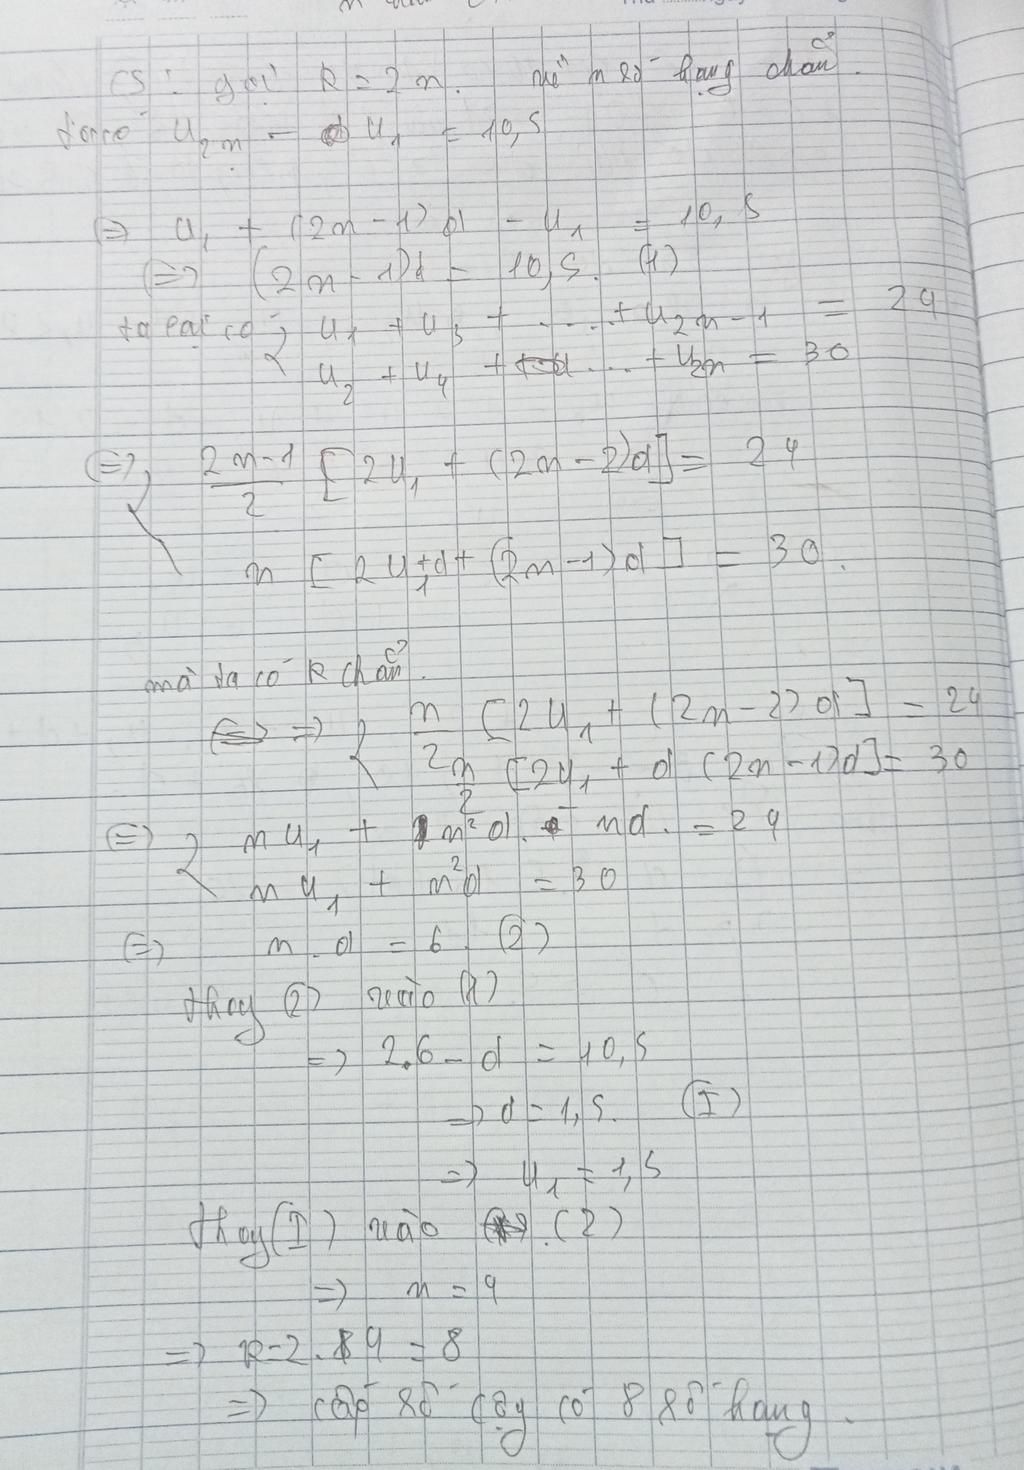 C5: gọi k = 2n. số hạng chẵn.
ta có u₂ₙ - u₁ = 10,5
⇒ u₁ + (2n-1)d - u₁ = 10,5
⇔ (2n-1)d = 10,5. (1)
ta lại có { u₁ + u₃ + ... + u₂ₙ₋₁ = 24
u₂ + u₄ + ... + u₂ₙ = 30
⇔ { (2n-1)/2 [2u₁ + (2n-2)d] = 24
n [2u₁+d+(2n-1)d] = 30.
mà ta có k chẵn.
⇒ { n/2 [2u₁ + (2n-2)d] = 24
n/2 [2u₁ + d (2n-1)d] = 30
⇔ { nu₁ + n²d - nd. = 24
nu₁ + n²d = 30
⇔ n.d = 6 (2)
thay (2) vào (1)
⇒ 2.6 - d = 10,5
⇒ d = 1,5. (I)
⇒ u₁ = 1,5
thay (I) vào (2)
⇒ n = 4
⇒ k = 2.4 = 8
⇒ cấp số cộg có 8 số hạng.